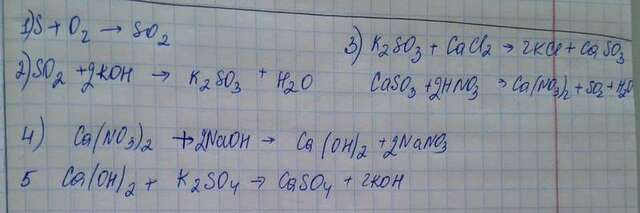 1) S + O2 → SO2
2) SO2 + 2KOH → K2SO3 + H2O
3) K2SO3 + CaCl2 → 2KCl + CaSO3
CaSO3 + 2HNO3 → Ca(NO3)2 + SO2 + H2O
4) Ca(NO3)2 + 2NaOH → Ca(OH)2 + 2NaNO3
5 Ca(OH)2 + K2SO4 → CaSO4 + 2KOH